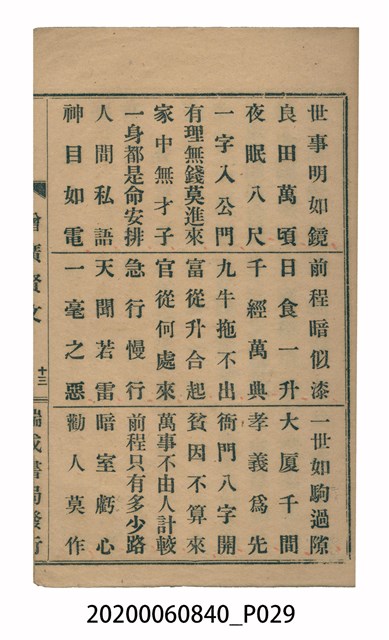 世事明如鏡 前程暗似漆 一世如駒過隙
良田萬頃 日食一升 大厦千間
夜眠八尺 千經萬典 孝義爲先
一字入公門 九牛拖不出 衙門八字開
有理無錢莫進來 富從升合起 貧因不算來
家中無才子 官從何處來 萬事不由人計較
一身都是命安排 急行慢行 前程只有多少路
人間私語 天聞若雷 暗室虧心
神目如電 一毫之惡 勸人莫作
增廣賢文 十三 瑞成書局發行
20200060840_P029